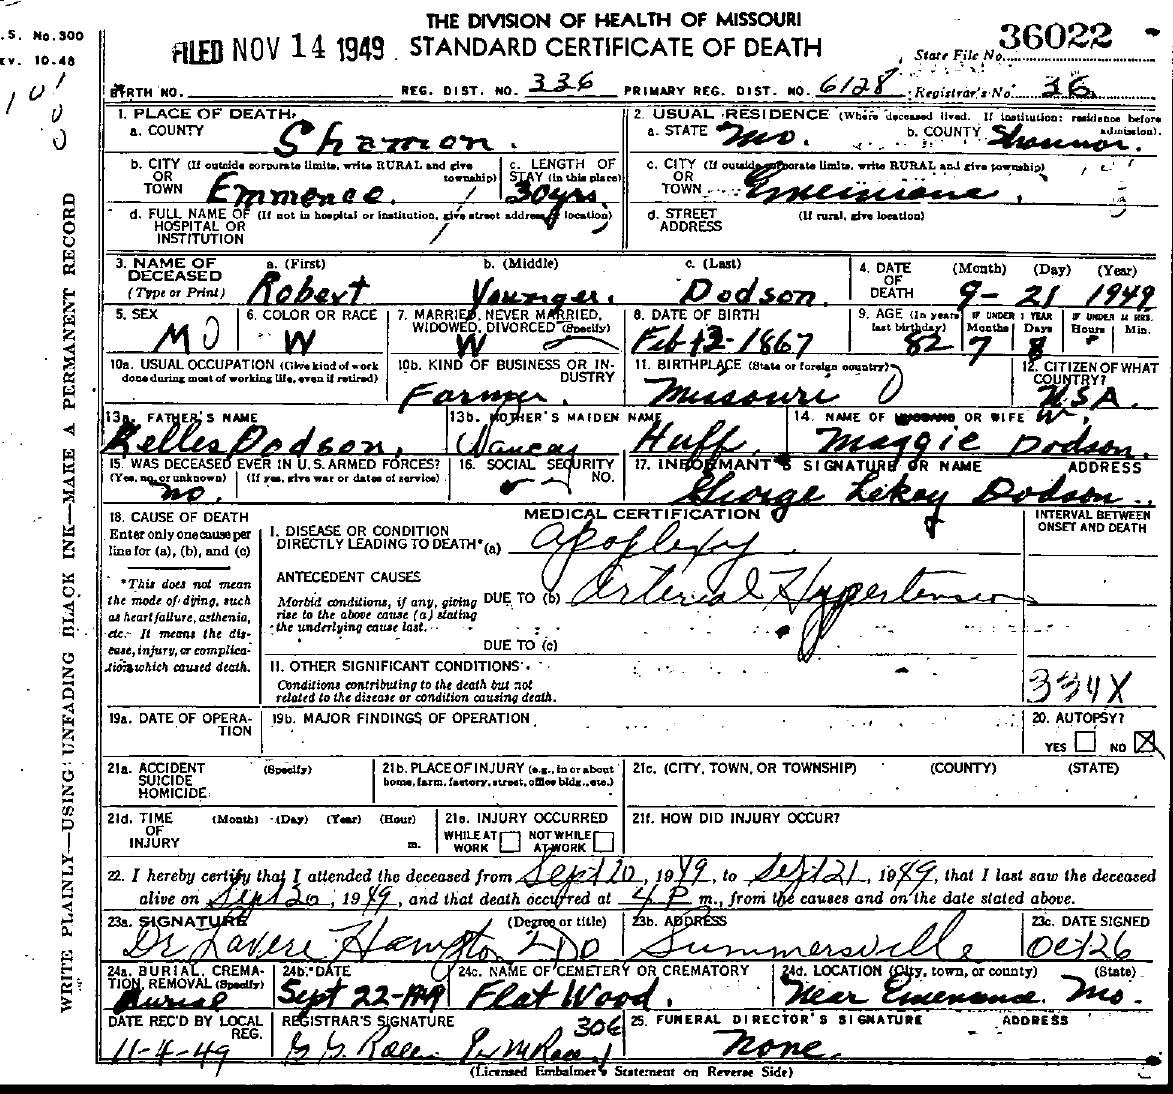 THE DIVISION OF HEALTH OF MISSOURI
STANDARD CERTIFICATE OF DEATH
FILED NOV 14 1949
36022
State File No.
.S. No.300
EV. 10-48
BIRTH NO. REG. DIST. NO. 336 PRIMARY REG. DIST. NO. 6128 Registrar's No. 36
1. PLACE OF DEATH:
a. COUNTY Shannon.
b. CITY (If outside corporate limits, write RURAL and give township) OR TOWN Emmence.
c. LENGTH OF STAY (in this place) 30 yrs.
d. FULL NAME OF (If not in hospital or institution, give street address or location) HOSPITAL OR INSTITUTION
2. USUAL RESIDENCE (Where deceased lived. If institution: residence before admission).
a. STATE Mo. b. COUNTY Shannon.
c. CITY (If outside corporate limits, write RURAL and give township) OR TOWN
d. STREET ADDRESS (If rural, give location)
3. NAME OF DECEASED (Type or Print)
a. (First) Robert b. (Middle) Younger. c. (Last) Dodson.
4. DATE OF DEATH (Month) (Day) (Year) 9- 21 1949
5. SEX M
6. COLOR OR RACE W
7. MARRIED, NEVER MARRIED, WIDOWED, DIVORCED (Specify) W
8. DATE OF BIRTH Feb 13-1867
9. AGE (In years last birthday) 82 IF UNDER 1 YEAR Months 7 Days 8 IF UNDER 24 HRS. Hours Min.
10a. USUAL OCCUPATION (Give kind of work done during most of working life, even if retired)
10b. KIND OF BUSINESS OR INDUSTRY Farmer.
11. BIRTHPLACE (State or foreign country) Missouri
12. CITIZEN OF WHAT COUNTRY? U.S.A.
13a. FATHER'S NAME Dodson.
13b. MOTHER'S MAIDEN NAME Huff.
14. NAME OF HUSBAND OR WIFE Maggie Dodson.
15. WAS DECEASED EVER IN U.S. ARMED FORCES? (Yes, no, or unknown) (If yes, give war or dates of service) no.
16. SOCIAL SECURITY NO.
17. INFORMANT'S SIGNATURE OR NAME ADDRESS
George Lekey Dodson.
18. CAUSE OF DEATH
Enter only one cause per line for (a), (b), and (c)
*This does not mean the mode of dying, such as heart failure, asthenia, etc. It means the disease, injury, or complication which caused death.
MEDICAL CERTIFICATION
INTERVAL BETWEEN ONSET AND DEATH
I. DISEASE OR CONDITION DIRECTLY LEADING TO DEATH* (a) Apoplexy.
ANTECEDENT CAUSES
Morbid conditions, if any, giving rise to the above cause (a) stating the underlying cause last.
DUE TO (b) Arterial Hypertension
DUE TO (c)
II. OTHER SIGNIFICANT CONDITIONS
Conditions contributing to the death but not related to the disease or condition causing death.
334X
19a. DATE OF OPERATION
19b. MAJOR FINDINGS OF OPERATION
20. AUTOPSY?
YES NO X
21a. ACCIDENT SUICIDE HOMICIDE (Specify)
21b. PLACE OF INJURY (e.g., in or about home, farm, factory, street, office bldg., etc.)
21c. (CITY, TOWN, OR TOWNSHIP) (COUNTY) (STATE)
21d. TIME OF INJURY (Month) (Day) (Year) (Hour) m.
21e. INJURY OCCURRED WHILE AT WORK NOT WHILE AT WORK
21f. HOW DID INJURY OCCUR?
22. I hereby certify that I attended the deceased from Sept 20, 1949, to Sept 21, 1949, that I last saw the deceased
alive on Sept 20, 1949, and that death occurred at 4 P m., from the causes and on the date stated above.
23a. SIGNATURE (Degree or title) Dr Lavere Hampton
23b. ADDRESS Summersville
23c. DATE SIGNED Oct 26
24a. BURIAL, CREMATION, REMOVAL (Specify) Burial
24b. DATE Sept 22-1949
24c. NAME OF CEMETERY OR CREMATORY Flat Wood.
24d. LOCATION (City, town, or county) (State) Near Mo.
DATE REC'D BY LOCAL REG. 11-4-49
REGISTRAR'S SIGNATURE 306
25. FUNERAL DIRECTOR'S SIGNATURE ADDRESS
None.
(Licensed Embalmer's Statement on Reverse Side)
WRITE PLAINLY—USING UNFADING BLACK INK—MAKE A PERMANENT RECORD